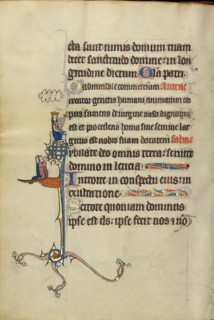 cta sunt nimis domum tuam
decet sanctitudo domine: in lon
gitudine dierum Gla patri
O admirabile commercium Antene
creator generis humani animatum cor
pus sumens de uirgine nasci dignatus
est et procedens homo sine semine lar
gitus est nobis suam deitatem
Iubilate deo omnis terra: seruite
domino in leticia:
Introite in conspectu eius: in
exultatione
Scitote quoniam dominus
ipse est deus: ipse fecit nos et no